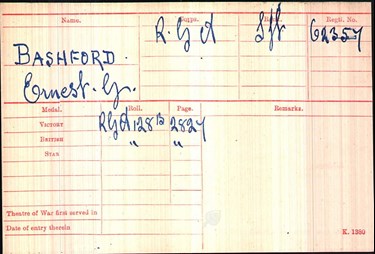 Name. Corps. Rank. Regtl. No.
R. G. A Gnr 62357
BASHFORD.
Ernest. G.
Medal. Roll. Page. Remarks.
VICTORY RGA 128B 2827
BRITISH " "
STAR
Theatre of War first served in
Date of entry therein
K. 1380